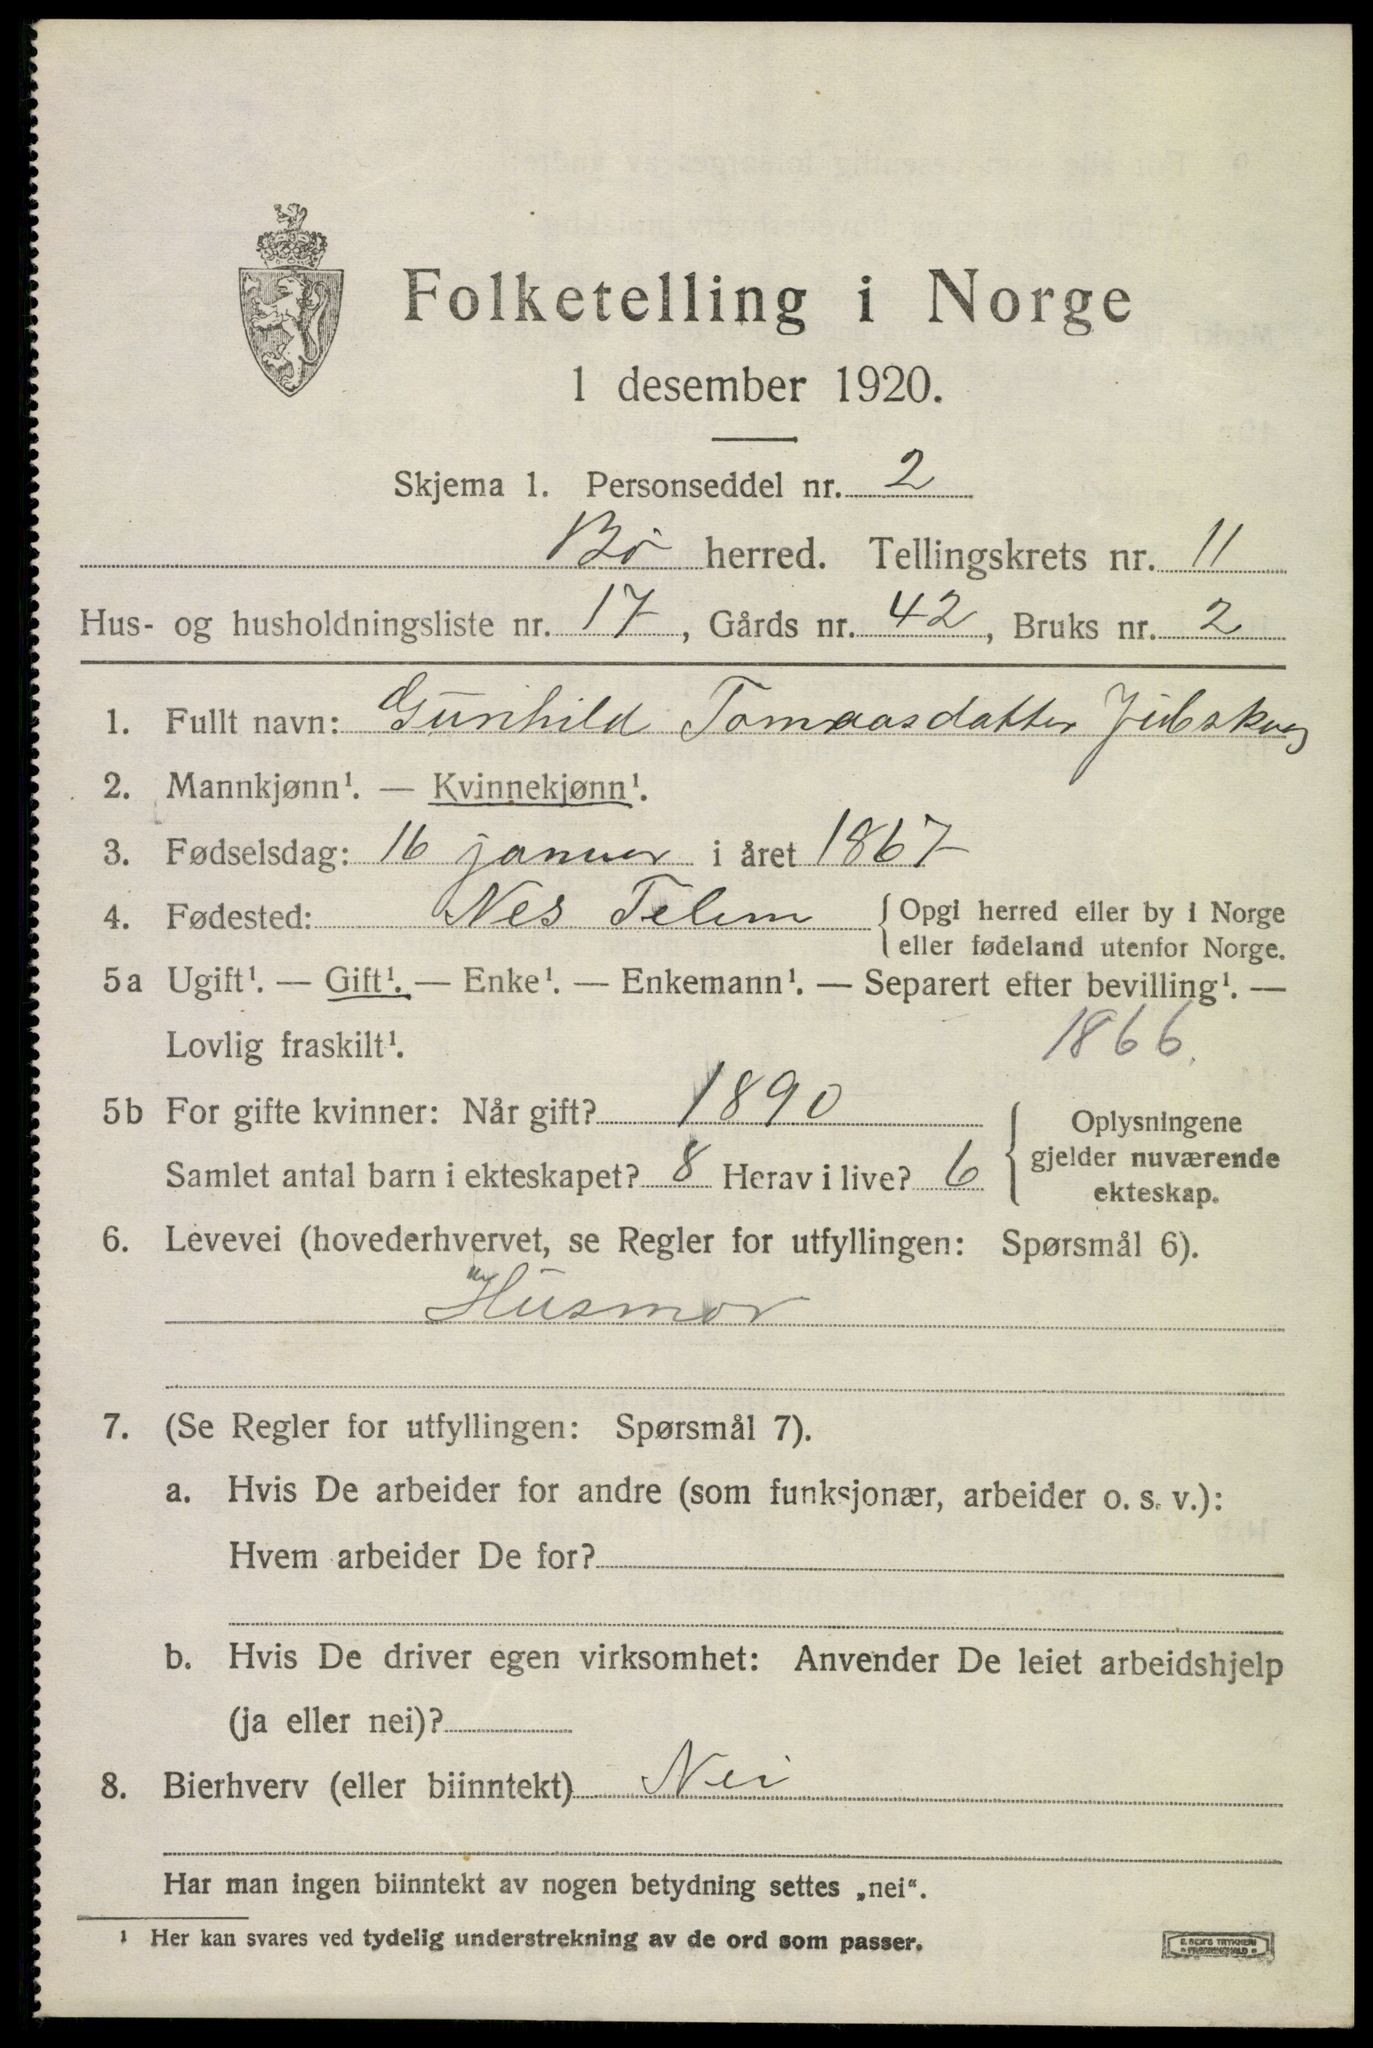 Folketelling i Norge
1 desember 1920.
Skjema 1. Personseddel nr. 2
Bø herred. Tellingskrets nr. 11
Hus- og husholdningsliste nr. 17, Gårds nr. 42, Bruks nr. 2
1. Fullt navn: Gunhild Tomaasdatter
2. Mannkjønn¹. — Kvinnekjønn¹.
3. Fødselsdag: 16 januar i året 1867
4. Fødested: Nes Telem { Opgi herred eller by i Norge
eller fødeland utenfor Norge.
5a Ugift¹. — Gift¹. — Enke¹. — Enkemann¹. — Separert efter bevilling¹. —
Lovlig fraskilt¹. 1866.
5b For gifte kvinner: Når gift? 1890
Samlet antal barn i ekteskapet? 8 Herav i live? 6 { Oplysningene
gjelder nuværende
ekteskap.
6. Levevei (hovederhvervet, se Regler for utfyllingen: Spørsmål 6).
Husmor
7. (Se Regler for utfyllingen: Spørsmål 7).
a. Hvis De arbeider for andre (som funksjonær, arbeider o. s. v.):
Hvem arbeider De for?
b. Hvis De driver egen virksomhet: Anvender De leiet arbeidshjelp
(ja eller nei)?
8. Bierhverv (eller biinntekt) Nei
Har man ingen biinntekt av nogen betydning settes „nei“.
¹ Her kan svares ved tydelig understrekning av de ord som passer.